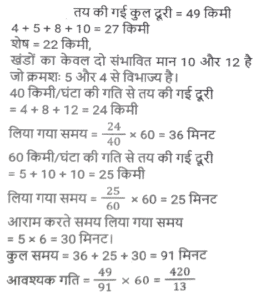 तय की गई कुल दूरी = 49 किमी
4 + 5 + 8 + 10 = 27 किमी
शेष = 22 किमी,
खंडों का केवल दो संभावित मान 10 और 12 है
जो क्रमशः 5 और 4 से विभाज्य है।
40 किमी/घंटा की गति से तय की गई दूरी
= 4 + 8 + 12 = 24 किमी
लिया गया समय = 24/40 × 60 = 36 मिनट
60 किमी/घंटा की गति से तय की गई दूरी
= 5 + 10 + 10 = 25 किमी
लिया गया समय = 25/60 × 60 = 25 मिनट
आराम करते समय लिया गया समय
= 5 × 6 = 30 मिनट।
कुल समय = 36 + 25 + 30 = 91 मिनट
आवश्यक गति = 49/91 × 60 = 420/13